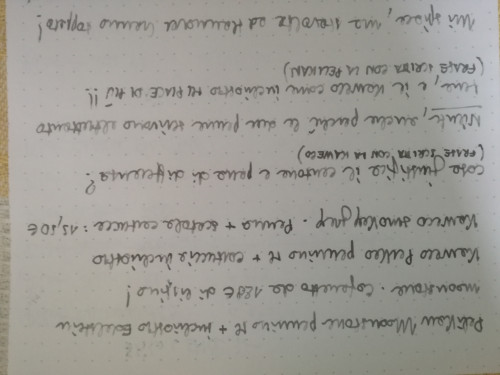 Pelikan Moonstone pennino M + inchiostro Edelstein
moonstone. Cofanetto da 189€ di listino!
Kaweco Perkeo pennino M + cartuccia inchiostro
Kaweco smokey grey. Penna + scatola cartucce: 15,50€
cosa giustifica il centone e passa di differenza?
(FRASE SCRITTA CON LA KAWECO)
Niente, anche perché le due penne scrivono altrettanto
bene, e il Kaweco come inchiostro MI PIACE DI PIÙ!!
(FRASE SCRITTA CON LA PELIKAN)
Mi spiace, ma stavolta ad Hannover hanno toppato!